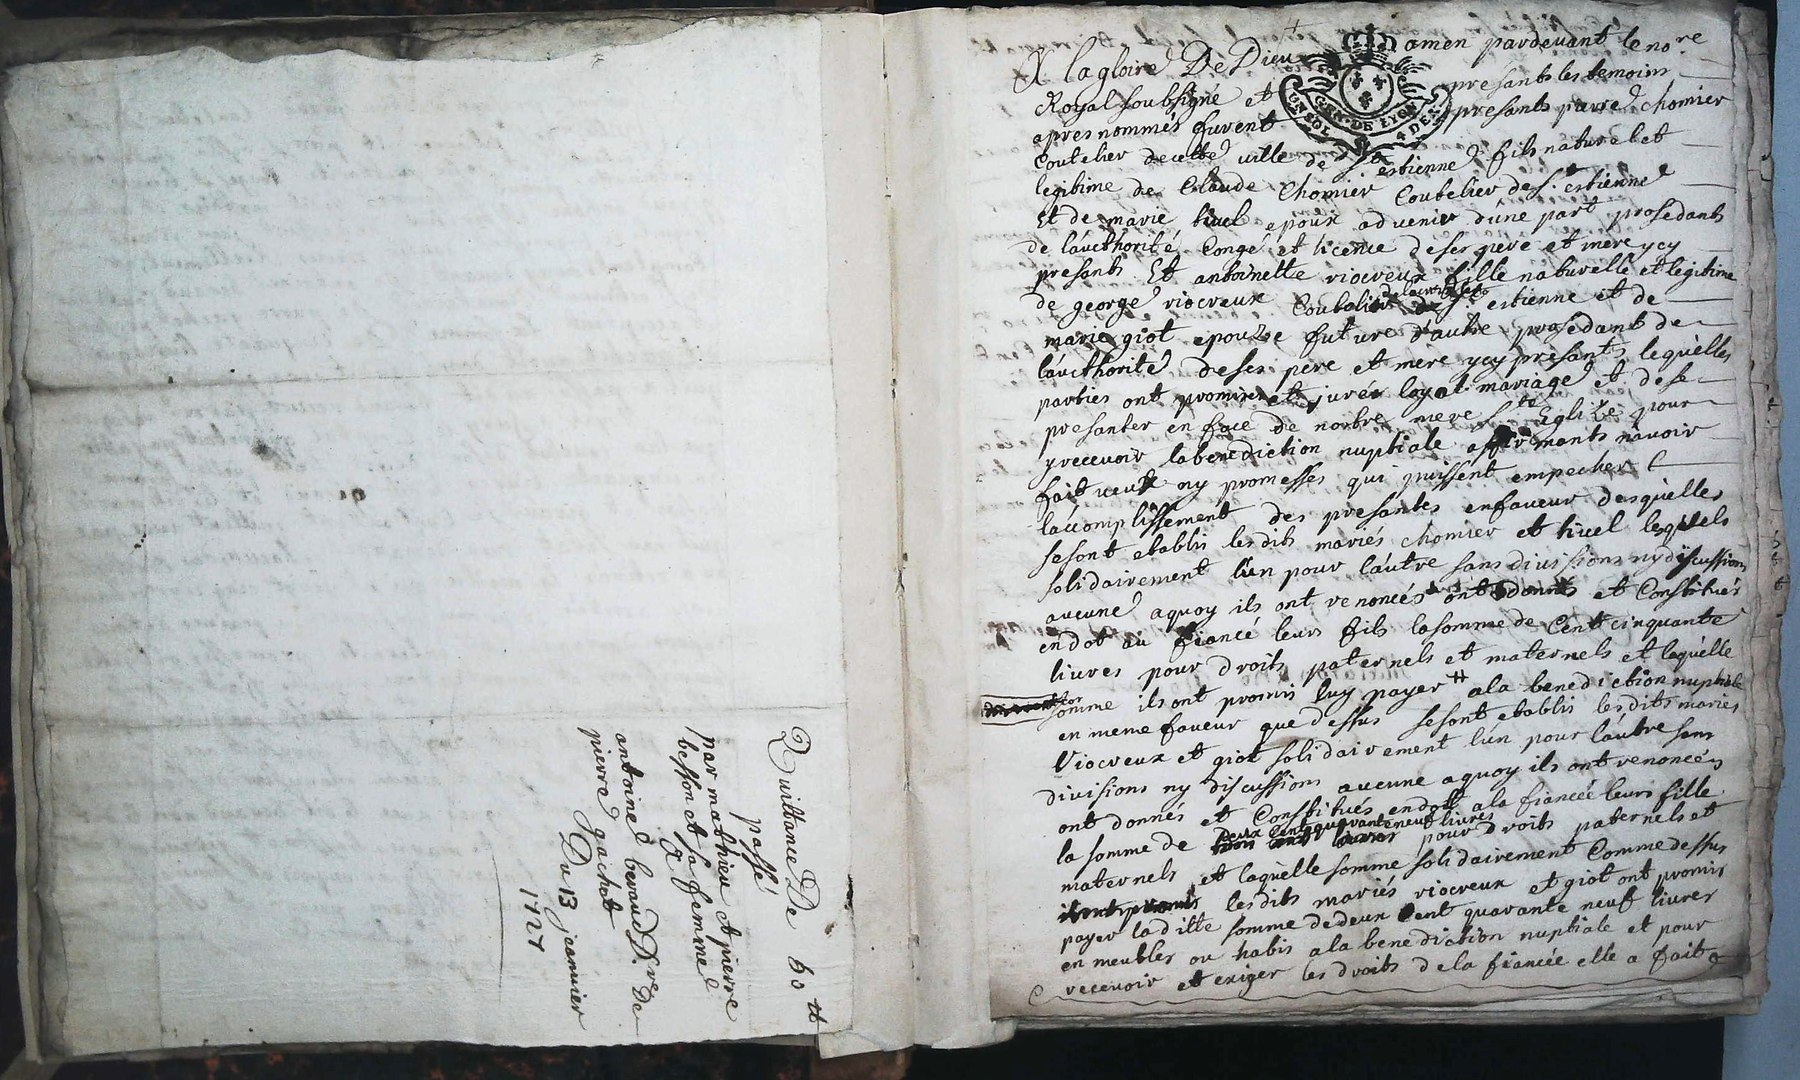 Quittance De 60 tt
passé
par mathieu et pierre
besson et sa femme
a
antoine beraud D.re de
pierre gachot
Du 13 janvier
1727
A la gloire De Dieu amen pardevant le no.re
Royal soubsigné et presants les temoins
apres nommés furent presants pierre chomier
Coutelier de cette ville de St estienne fils naturel et
legitime de Claude Chomier Coutelier de St. estienne
Et de marie tivel epoux advenir d'une part prosedants
de l'aucthorité Congé et licence de ses pere et mere ycy
presants Et antoinette viocreux fille naturelle et legitime
de george viocreux Coutelier de St estienne et de
marie giot epouze future d'autre prosedants de
l'aucthorité de ses pere et mere ycy presants lequelles
parties ont promises et jurés loyal mariage et de se
presanter en face de nostre mere Ste Eglize pour
y recevoir la benediction nuptiale affirmants n'avoir
fait veux ny promesses qui puissent empecher l
l'acomplissement des presantes en faveur desquelles
se sont etablis les dits mariés chomier et tivel lesquels
solidairement l'un pour l'autre sans divisions ny discussions
aucune a quoy ils ont renoncés ont donnés et Constitués
en dot au fiancé leurs fils la somme de Cent cinquante
livres pour droits paternels et maternels et laquelle
somme ils ont promis luy payer # a la benediction nuptiale
en meme faveur que dessus se sont etablis les dits mariés
Viocreux et giot solidairement l'un pour l'autre sans
divisions ny discussions aucune a quoy ils ont renoncés
ont donnés et Constitués en dott a la fiancée leurs fille
deux cents quarante neuf livres
la somme de pour droits paternels et
maternels et laquelle somme solidairement Comme dessus
les dits mariés viocreux et giot ont promis
payer la ditte somme de deux Cent quarante neuf livres
en meubles ou habis a la benediction nuptiale et pour
recevoir et exiger les droits de la fiancée elle a fait
GEN. DE LYON
UN SOL 4 DEN.